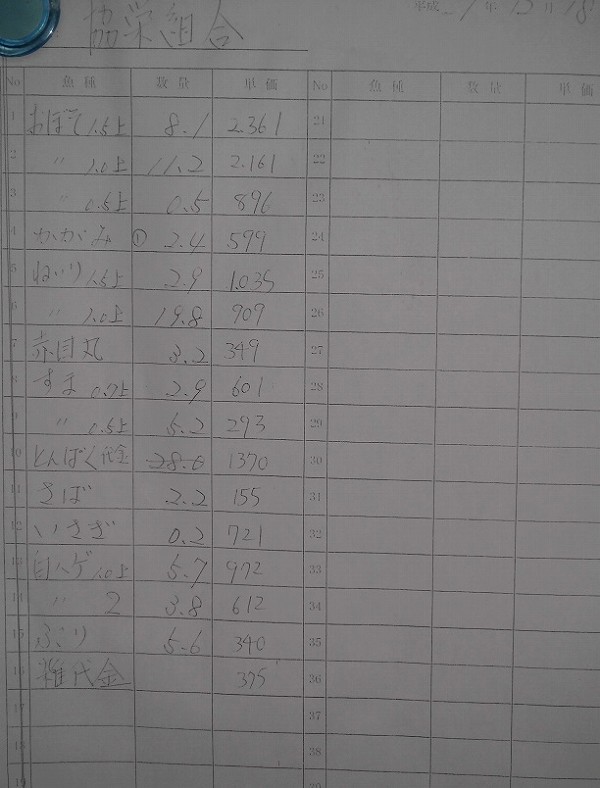 協栄組合
平成 年 月 18
No 魚種 数量 単価 No 魚種 数量 単価
1 おぼそ 1.5上 8.1 2.361 21
2 〃 1.0上 11.2 2.161 22
3 〃 0.5上 0.5 896 23
4 かがみ ① 2.4 599 24
5 ねいり 1.5上 2.9 1.035 25
6 〃 1.0上 19.8 909 26
7 赤目丸 3.2 349 27
8 すま 0.7上 2.9 601 28
9 〃 0.5上 5.2 293 29
10 とんぼく代金 28.0 1370 30
11 さば 2.2 155 31
12 いさぎ 0.2 721 32
13 白ハゲ 1.0上 5.7 972 33
14 〃 2 3.8 612 34
15 ぶり 5.6 340 35
16 雑代金 375 36
17 37
18 38
19